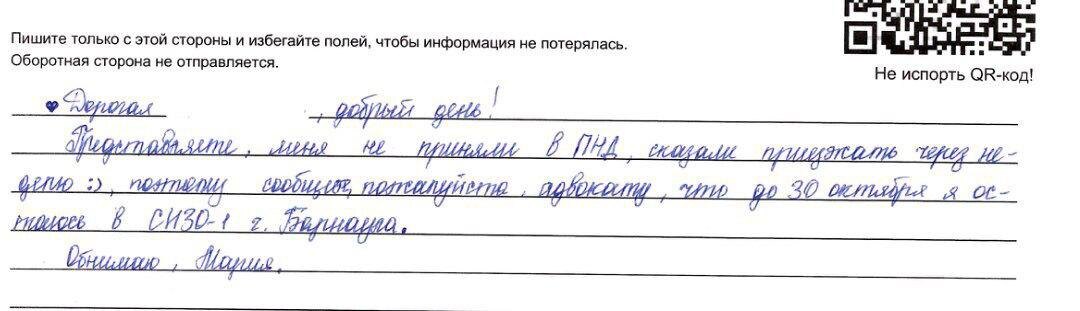 Пишите только с этой стороны и избегайте полей, чтобы информация не потерялась.
Оборотная сторона не отправляется.
Не испорть QR-код!
Дорогая , добрый день!
Представляете, меня не приняли в ПНД, сказали приезжать через не-
делю :), поэтому сообщите, пожалуйста, адвокату, что до 30 октября я ос-
талась в СИЗО-1 г. Барнаула.
Обнимаю, Мария.